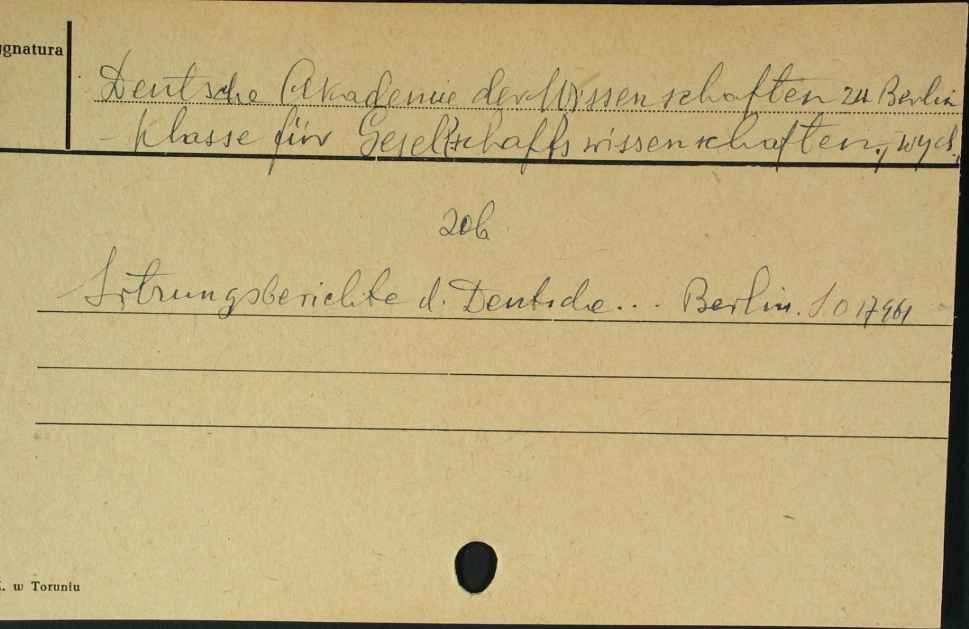 ygnatura
Deutsche Akademie der Wissenschaften zu Berlin
Klasse für Gesellschaftswissenschaften, wyd.
zob
Sitzungsberichte d. Deutsche... Berlin. SO 17961
K. w Toruniu